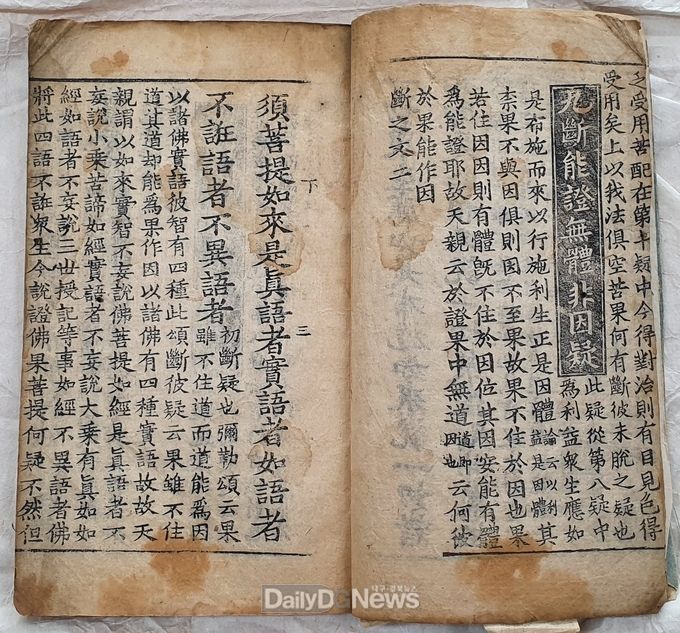 乏受用苦配在第疑中今得對治則有目見色得
受用矣上以我法俱空苦果何有斷彼未脫之疑也
九斷能證無體非因疑
此疑從第八疑中
爲利益衆生應如
是布施而來以行施利生正是因體論云以利益是因體其
柰果不與因俱則因不至果故果不住於因也果
若住因因則有體旣不住於因位其因安能有體
爲能證耶故天親云於證果中無道道即因也云何彼
於果能作因
斷之文二
下
三
須菩提如來是眞語者實語者如語者
不誑語者不異語者
初斷疑也彌勒頌云果
雖不住道而道能爲因
以諸佛實語彼智有四種此頌斷彼疑云果雖不住
道其道却能爲果作因以諸佛有四種實語故故天
親謂以如來實智不妄說佛菩提如經是眞語者不
妄說小乘苦諦如經實語者不妄說大乘有眞如如
經如語者不妄說三世授記等事如經不異語者佛
將此四語不誑衆生今說證佛果菩提何疑不然但
DailyDGNews
대구·경북뉴스